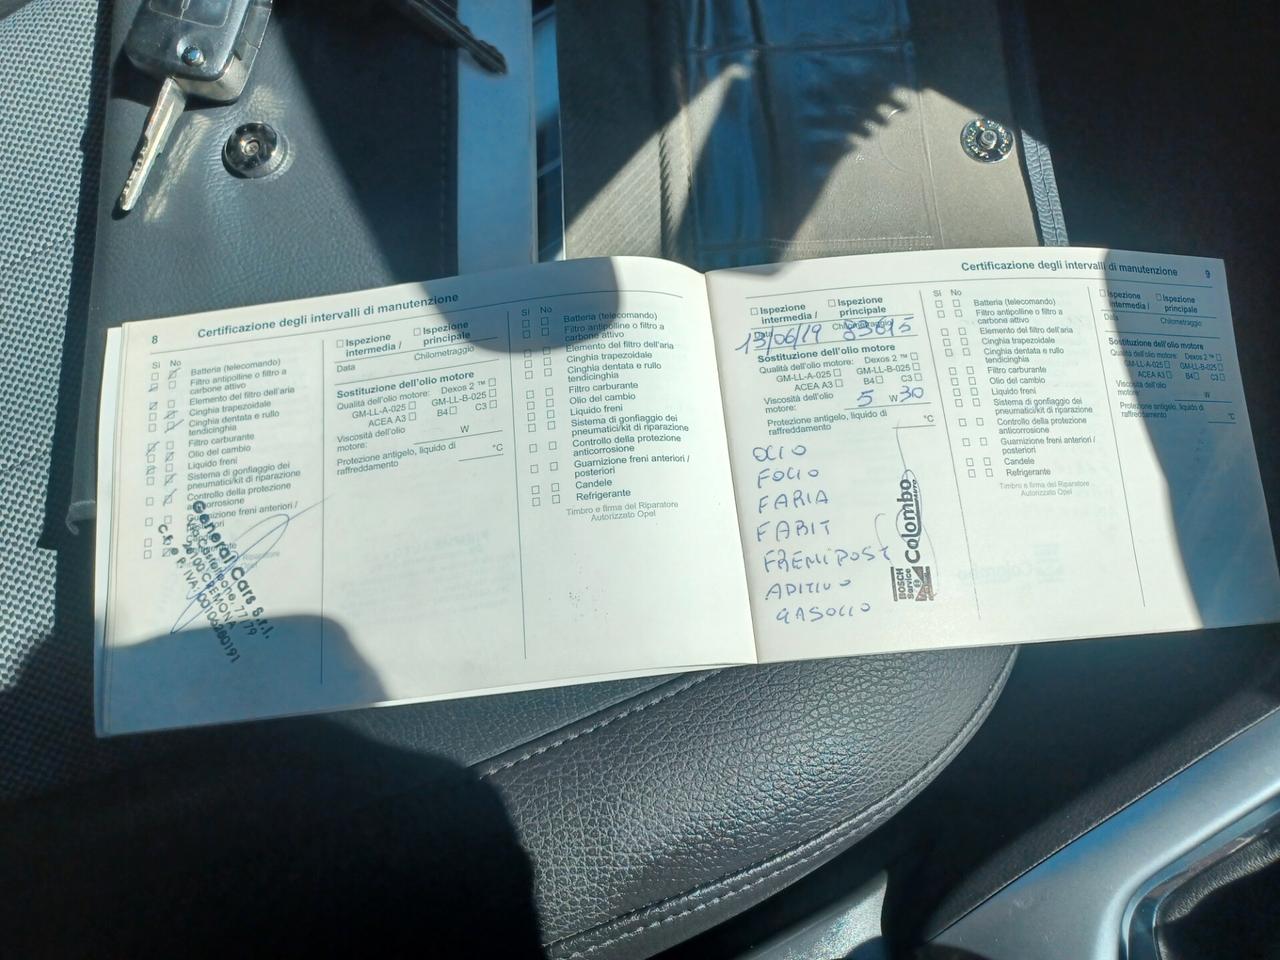 8
Certificazione degli intervalli di manutenzione
Sì No
Batteria (telecomando)
Filtro antipolline o filtro a
carbone attivo
Elemento del filtro dell'aria
Cinghia trapezoidale
Cinghia dentata e rullo
tendicinghia
Filtro carburante
Olio del cambio
Liquido freni
Sistema di gonfiaggio dei
pneumatici/kit di riparazione
Controllo della protezione
anticorrosione
Guarnizione freni anteriori /
General Cars S.r.l.
26100 CREMONA
Ispezione
intermedia /
Ispezione
principale
Data
Chilometraggio
Sostituzione dell'olio motore
Qualità dell'olio motore: Dexos 2 ™
GM-LL-A-025 GM-LL-B-025
ACEA A3 B4 C3
Viscosità dell'olio
motore: W
Protezione antigelo, liquido di
raffreddamento °C
Sì No
Batteria (telecomando)
Filtro antipolline o filtro a
carbone attivo
Elemento del filtro dell'aria
Cinghia trapezoidale
Cinghia dentata e rullo
tendicinghia
Filtro carburante
Olio del cambio
Liquido freni
Sistema di gonfiaggio dei
pneumatici/kit di riparazione
Controllo della protezione
anticorrosione
Guarnizione freni anteriori /
posteriori
Candele
Refrigerante
Timbro e firma del Riparatore
Autorizzato Opel
Certificazione degli intervalli di manutenzione 9
Ispezione
intermedia /
Ispezione
principale
Data
Chilometraggio
13/06/19
Sostituzione dell'olio motore
Qualità dell'olio motore: Dexos 2 ™
GM-LL-A-025 GM-LL-B-025
ACEA A3 B4 C3
Viscosità dell'olio
motore: 5 W 30
Protezione antigelo, liquido di
raffreddamento °C
OLIO
FOLIO
FARIA
FABIT
FRENIPOST
ADITIVO
GASOLIO
BOSCH
Service
Colombo
Sì No
Batteria (telecomando)
Filtro antipolline o filtro a
carbone attivo
Elemento del filtro dell'aria
Cinghia trapezoidale
Cinghia dentata e rullo
tendicinghia
Filtro carburante
Olio del cambio
Liquido freni
Sistema di gonfiaggio dei
pneumatici/kit di riparazione
Controllo della protezione
anticorrosione
Guarnizione freni anteriori /
posteriori
Candele
Refrigerante
Timbro e firma del Riparatore
Autorizzato Opel
Ispezione
intermedia /
Ispezione
principale
Data
Chilometraggio
Sostituzione dell'olio motore
Qualità dell'olio motore: Dexos 2 ™
GM-LL-A-025 GM-LL-B-025
ACEA A3 B4 C3
Viscosità dell'olio
motore: W
Protezione antigelo, liquido di
raffreddamento °C